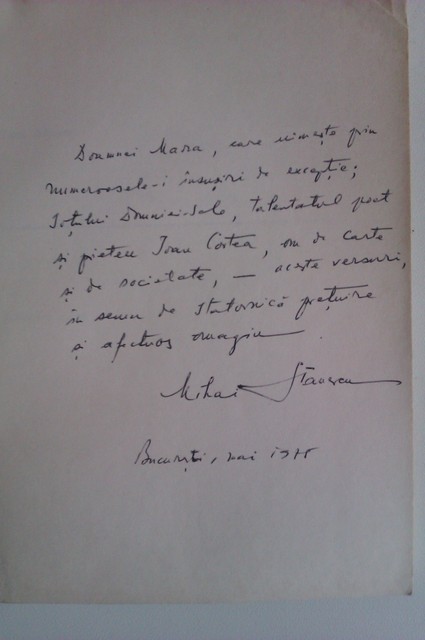 Doamnei Mara, care uimește prin
numeroasele-i însușiri de excepție;
Soțului Domniei-Sale, talentatul poet
și prieten Ioan Costea, om de carte
și de societate, — aceste versuri,
în semn de statornică prețuire
și afectuos omagiu.
Mihai Stănescu
București, mai 1975